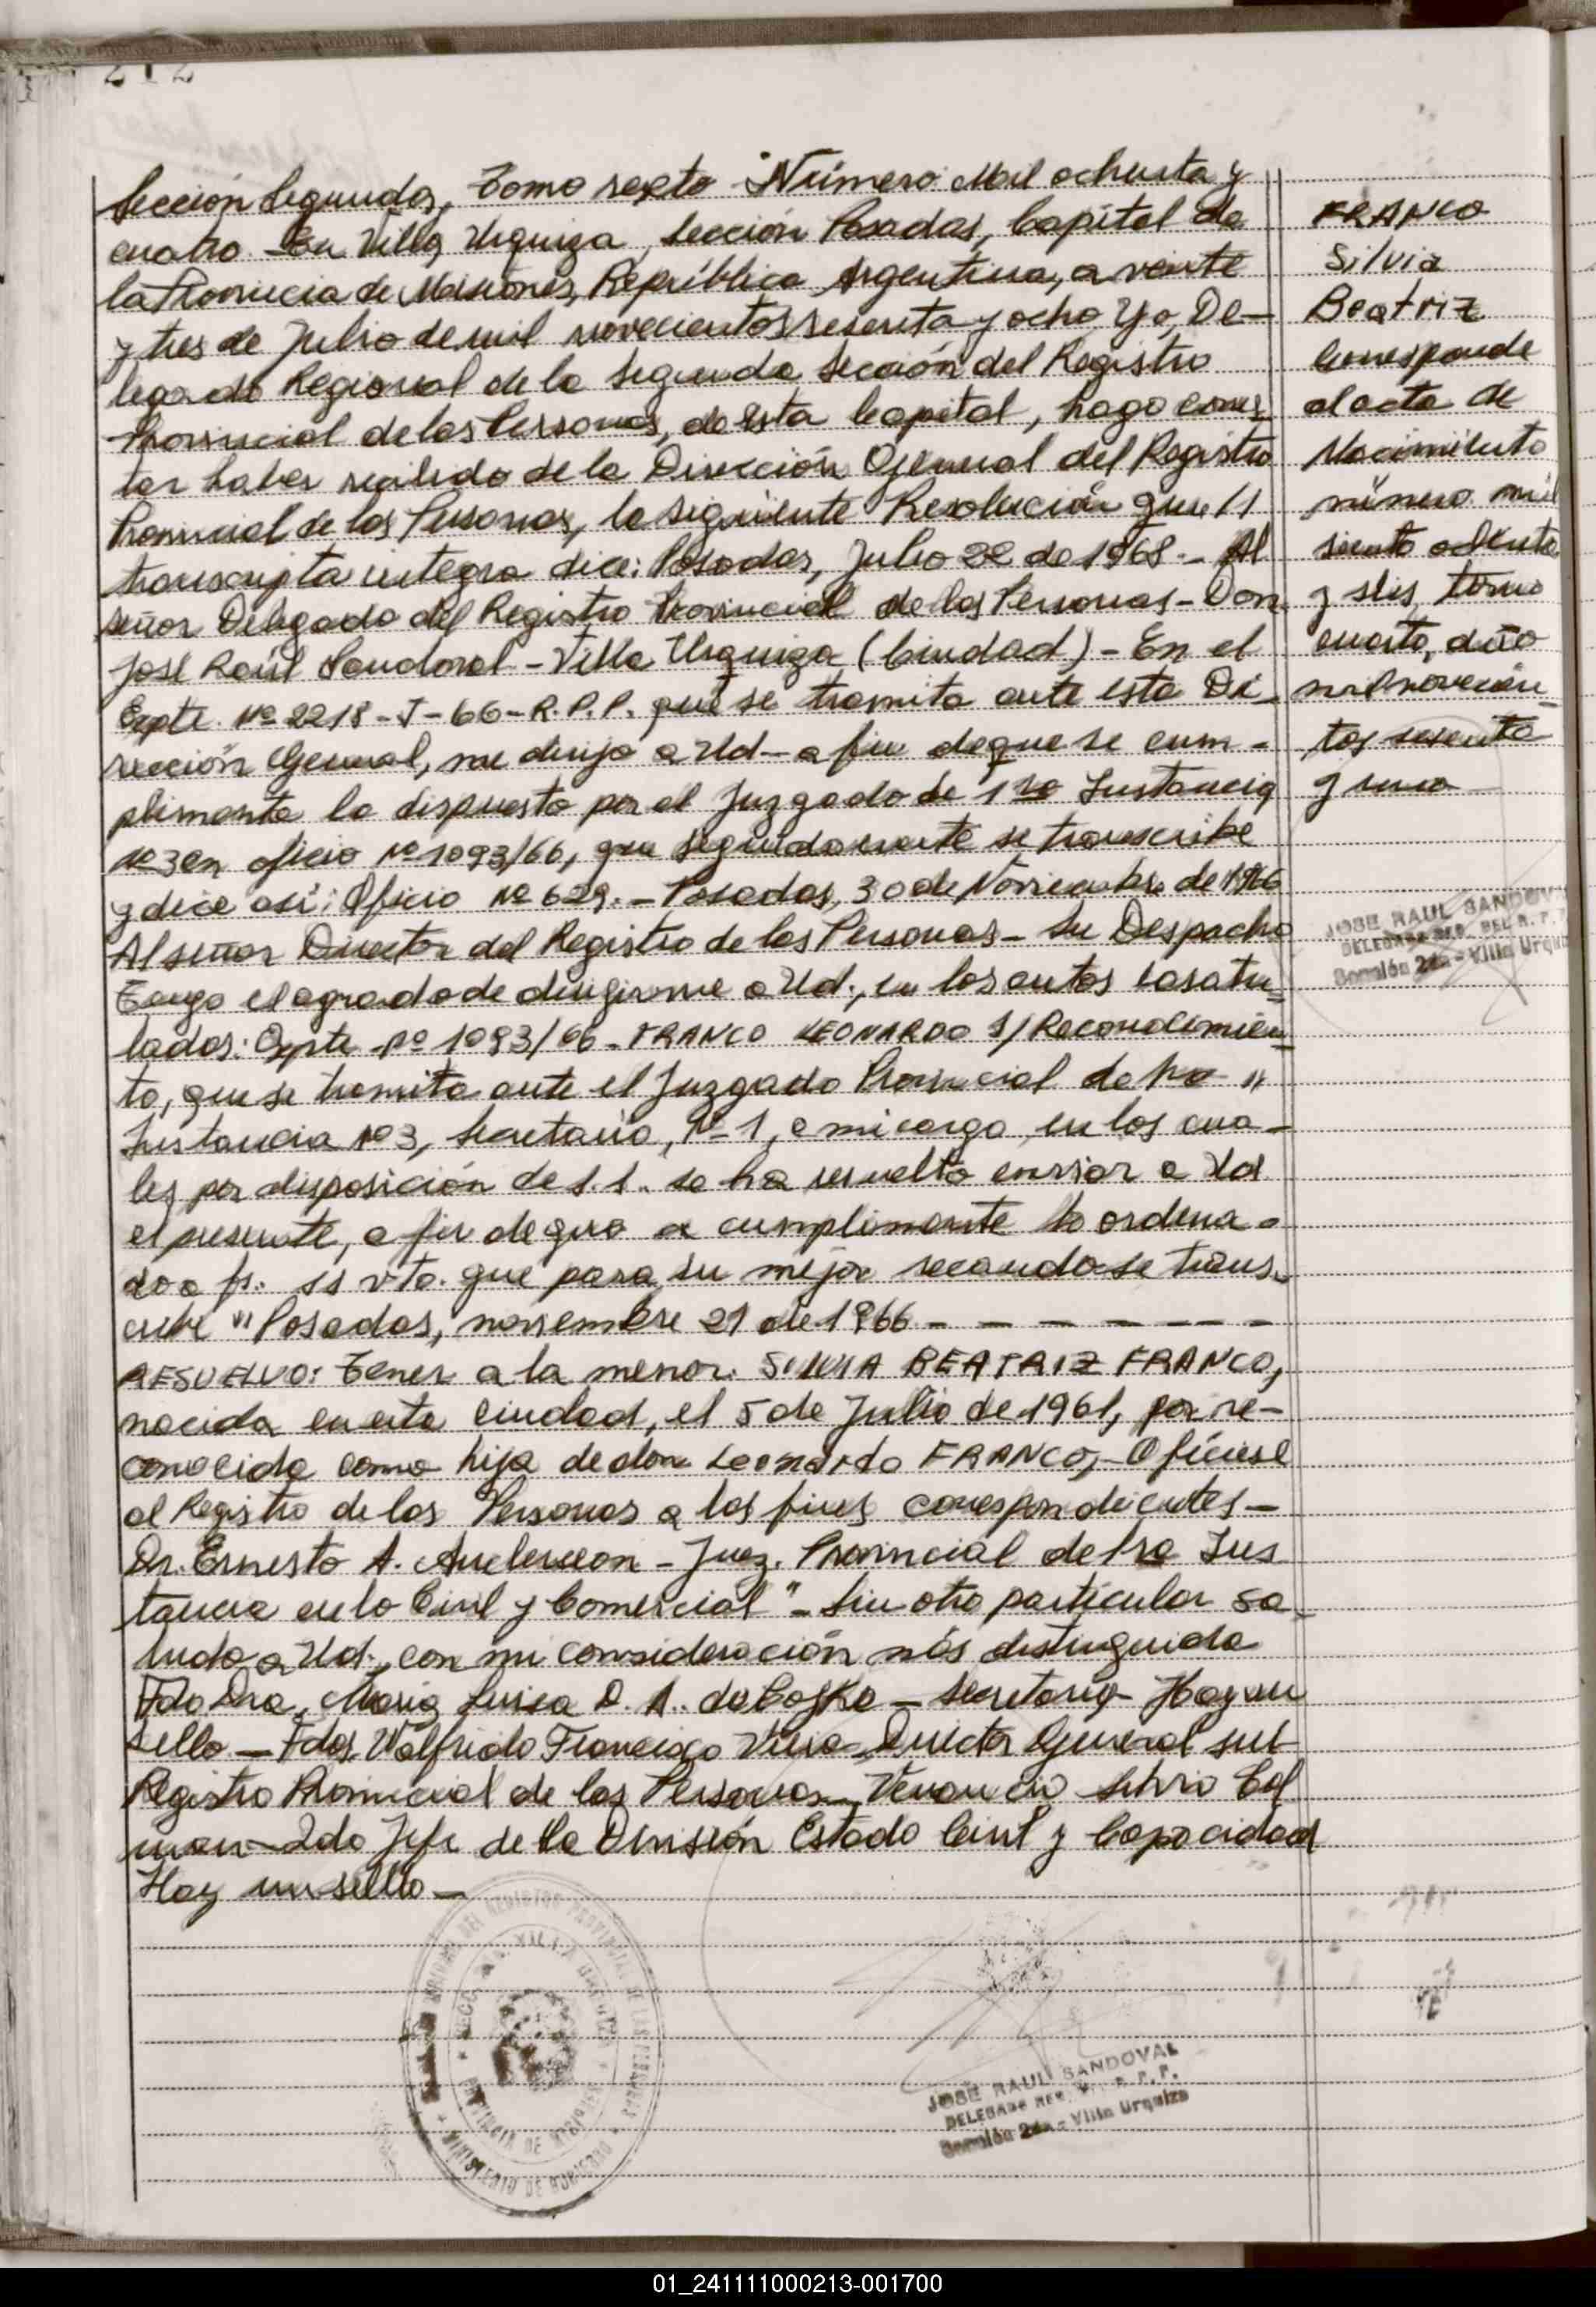 212
Sección Segunda, Tomo sexto - Número Mil ochenta y
cuatro - En Villa Urquiza, Sección Posadas, Capital de
la Provincia de Misiones, República Argentina, a veinte
y tres de Julio de mil novecientos sesenta y ocho. Yo, De-
legado Regional de la Segunda Sección del Registro
Provincial de las Personas, de esta Capital, hago cons
tar haber recibido de la Dirección General del Registro
Provincial de las Personas, la siguiente Resolución que //
transcripta integra dice: Posadas, Julio 22 de 1968 - Al
señor Delegado del Registro Provincial de las Personas - Don
José Raúl Sandoval - Villa Urquiza (Ciudad) - En el
Expte. Nº 2218-J-66-R.P.P. que se tramita ante esta Di-
rección General, me dirijo a Ud - a fin de que se cum-
plimente lo dispuesto por el Juzgado de 1ra Instancia
Nº 3 en oficio Nº 1093/66, que seguidamente se transcribe
y dice así: Oficio Nº 629. - Posadas, 30 de Noviembre de 1966
Al señor Director del Registro de las Personas - Su Despacho
Tengo el agrado de dirigirme a Ud., en los autos caratu-
lados: Expte Nº 1093/66 - FRANCO LEONARDO S/ Reconocimien
to, que se tramita ante el Juzgado Provincial de 1ra "
Instancia Nº 3, Secretaría, Nº 1, a mi cargo, en los cua-
les por disposición de S.S. se ha resuelto enviar a Ud
el presente, a fin de que se cumplimente lo ordena-
do a fs. 11 vta. que para su mejor recaudo se trans-
cribe " Posadas, noviembre 21 de 1966 - - - - - - -
RESUELVO: Tener a la menor SILVIA BEATRIZ FRANCO,
nacida en esta ciudad, el 5 de Julio de 1961, por re-
conocida como hija de don Leonardo FRANCO, - Ofíciese
al Registro de las Personas a los fines correspondientes -
Dr. Ernesto A. Anderson - Juez. Provincial de 1ra Ins
tancia en lo Civil y Comercial" - Sin otro particular sa-
ludo a Ud., con mi consideración más distinguida
Fdo Dra. María Luisa D. A. de - Secretaria - Hay un
sello - Fdos. Walfrido Francisco - Director General sub
Registro Provincial de las Personas - Venancio Silvio Col
man - 2do Jefe de la División Estado Civil y Capacidad
Hay un sello -
FRANCO
Silvia
Beatriz
Corresponde
al acta de
Nacimiento
número mil
ciento ochenta
y seis, tomo
cuarto, año
mil novecien-
tos sesenta
y uno
JOSE RAUL SANDOV
DELEGADO REG. DEL R. P. P
Sección 2da - Villa Urqu
JOSE RAUL SANDOVAL
DELEGADO REG. R. P. P.
Sección 2da - Villa Urquiza
PROVINCIA DE MISIONES
MINISTERIO DE GOBIERNO
01_241111000213-001700